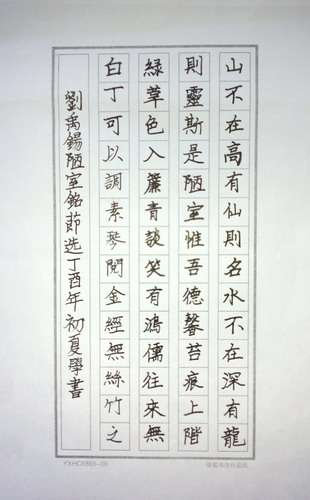 山不在高有仙則名水不在深有龍
則靈斯是陋室惟吾德馨苔痕上階
綠草色入簾青談笑有鴻儒往來無
白丁可以調素琴閱金經無絲竹之
劉禹錫陋室銘節选丁酉年初夏學書